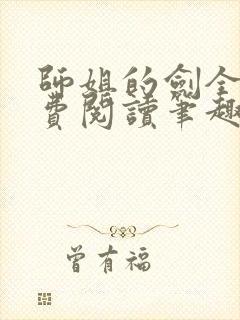 師姐的劍全
費閱讀筆趣
曾有福